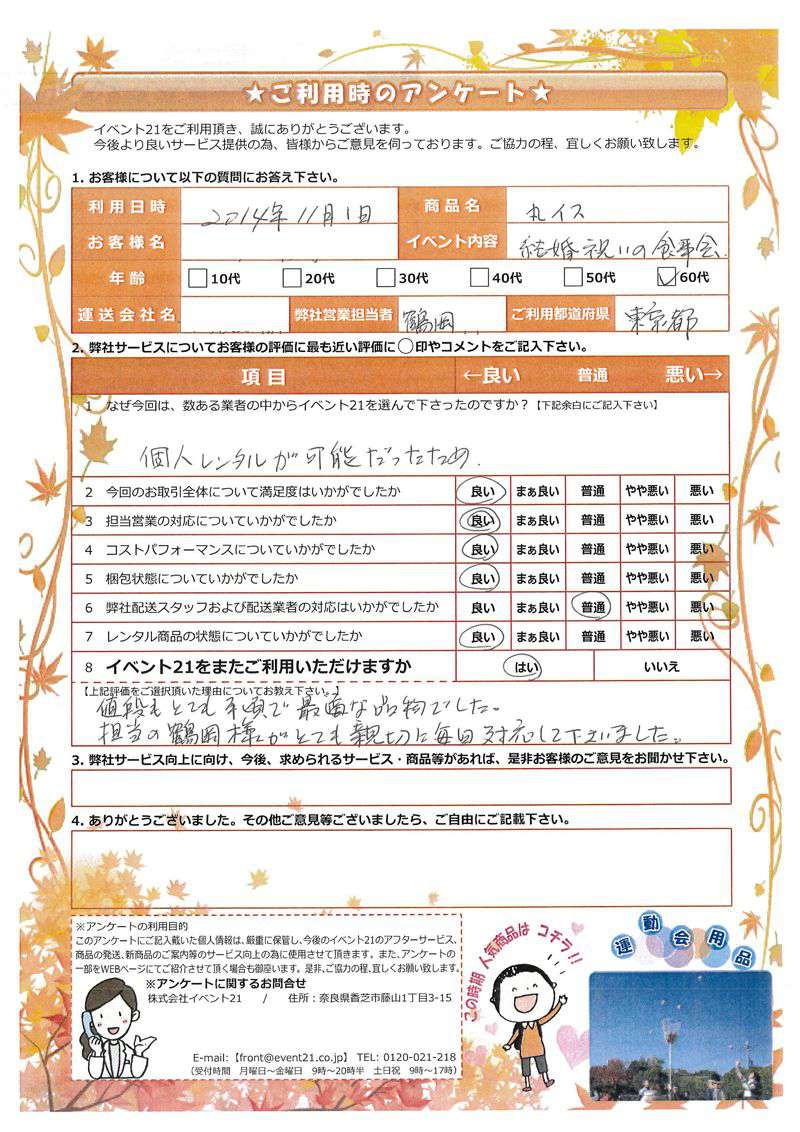 ★ご利用時のアンケート★
イベント21をご利用頂き、誠にありがとうございます。
今後より良いサービス提供の為、皆様からご意見を伺っております。ご協力の程、宜しくお願い致します。
1. お客様について以下の質問にお答え下さい。
利用日時 2014年11月1日 商品名 丸イス
お客様名 イベント内容 結婚祝いの食事会
年齢 10代 20代 30代 40代 50代 60代
運送会社名 弊社営業担当者 鶴岡 ご利用都道府県 東京都
2. 弊社サービスについてお客様の評価に最も近い評価に○印やコメントをご記入下さい。
項目 ←良い 普通 悪い→
1 なぜ今回は、数ある業者の中からイベント21を選んで下さったのですか？【下記余白にご記入下さい】
個人レンタルが可能だったため.
2 今回のお取引全体について満足度はいかがでしたか 良い まぁ良い 普通 やや悪い 悪い
3 担当営業の対応についていかがでしたか 良い まぁ良い 普通 やや悪い 悪い
4 コストパフォーマンスについていかがでしたか 良い まぁ良い 普通 やや悪い 悪い
5 梱包状態についていかがでしたか 良い まぁ良い 普通 やや悪い 悪い
6 弊社配送スタッフおよび配送業者の対応はいかがでしたか 良い まぁ良い 普通 やや悪い 悪い
7 レンタル商品の状態についていかがでしたか 良い まぁ良い 普通 やや悪い 悪い
8 イベント21をまたご利用いただけますか はい いいえ
【上記評価をご選択頂いた理由についてお教え下さい。】
値段もとても手頃で最適な品物でした。
担当の鶴岡様がとても親切に毎回対応して下さいました。
3. 弊社サービス向上に向け、今後、求められるサービス・商品等があれば、是非お客様のご意見をお聞かせ下さい。
4. ありがとうございました。その他ご意見等ございましたら、ご自由にご記載下さい。
※アンケートの利用目的
このアンケートにご記入戴いた個人情報は、厳重に保管し、今後のイベント21のアフターサービス、
商品の発送、新商品のご案内等のサービス向上の為に使用させて頂きます。また、アンケートの
一部をWEBページにてご紹介させて頂く場合も御座います。是非、ご協力の程、宜しくお願い致します。
※アンケートに関するお問合せ
株式会社イベント21 / 住所：奈良県香芝市藤山1丁目3-15
E-mail:【front@event21.co.jp】 TEL: 0120-021-218
（受付時間 月曜日～金曜日 9時～20時半 土日祝 9時～17時）
この時期 人気商品は コチラ!!
運動会用品